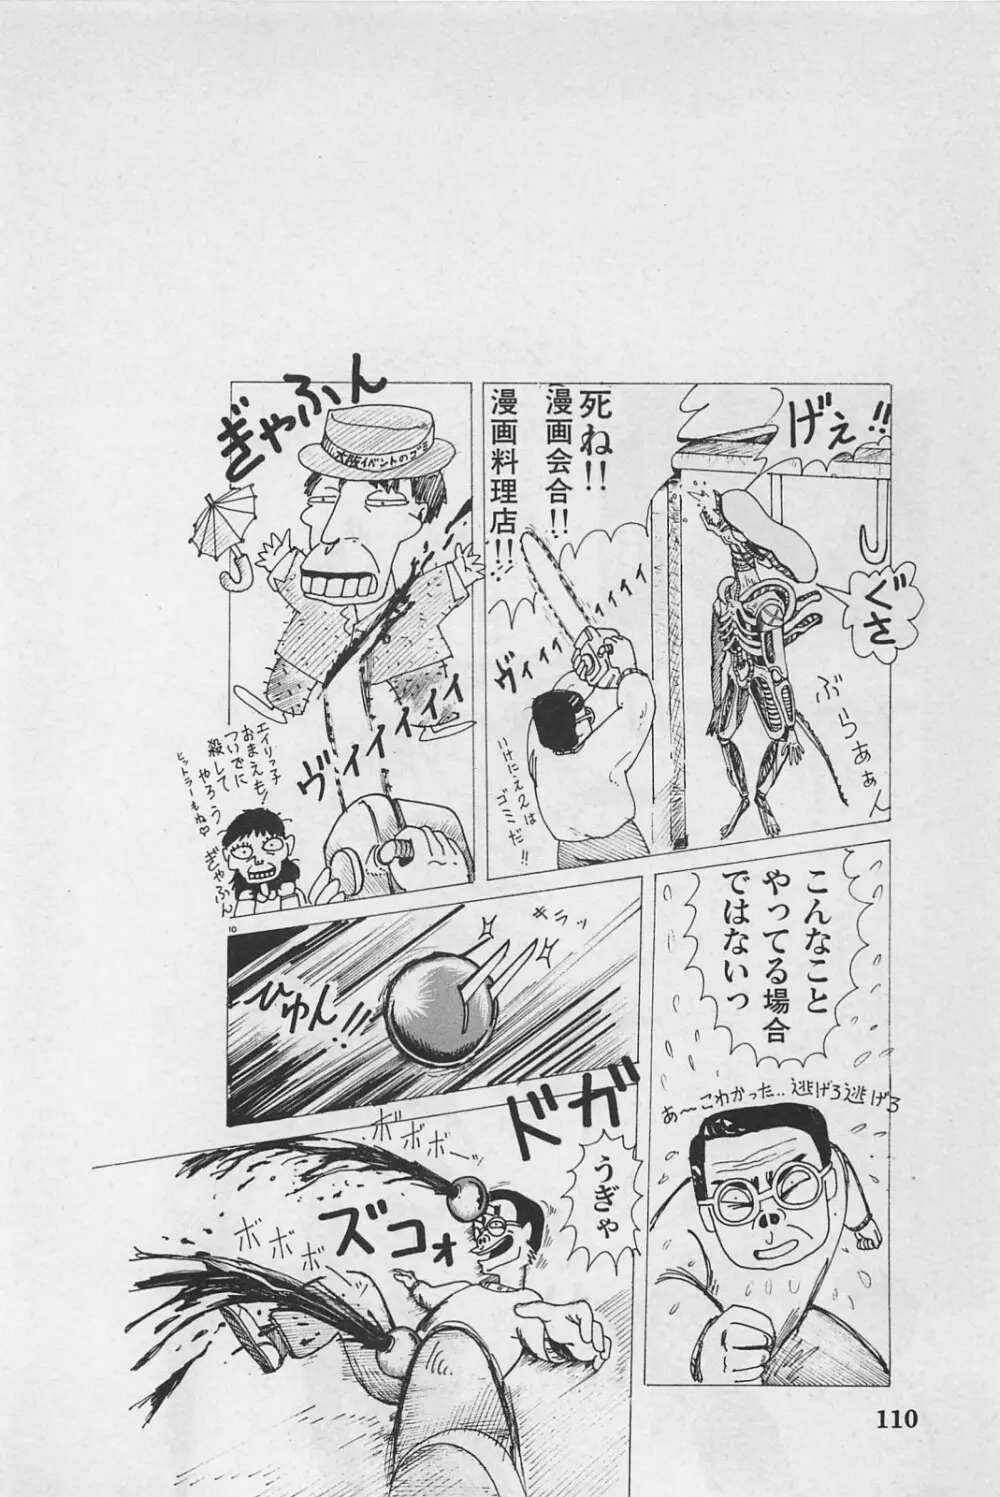 げぇ!!
ぐさ
ぶらぁぁん
死ね!!
漫画会合!!
漫画料理店!!
ヴィィィィィィィ
いけにえ2は
ゴミだ!!
ぎゃふん
大阪イベントのゴミ
ヴィィィィィィ
エイリっ子
おまえも!
ついでに
殺して
やろう
ヒットラーもね♡
ぎゃふん
こんなこと
やってる場合
ではないっ
あ〜こわかった‥逃げろ逃げろ
10
キラッ
ひゅん!!
ドガ
うぎゃ
ボボボーッ
ズコォ
ボボボ
110